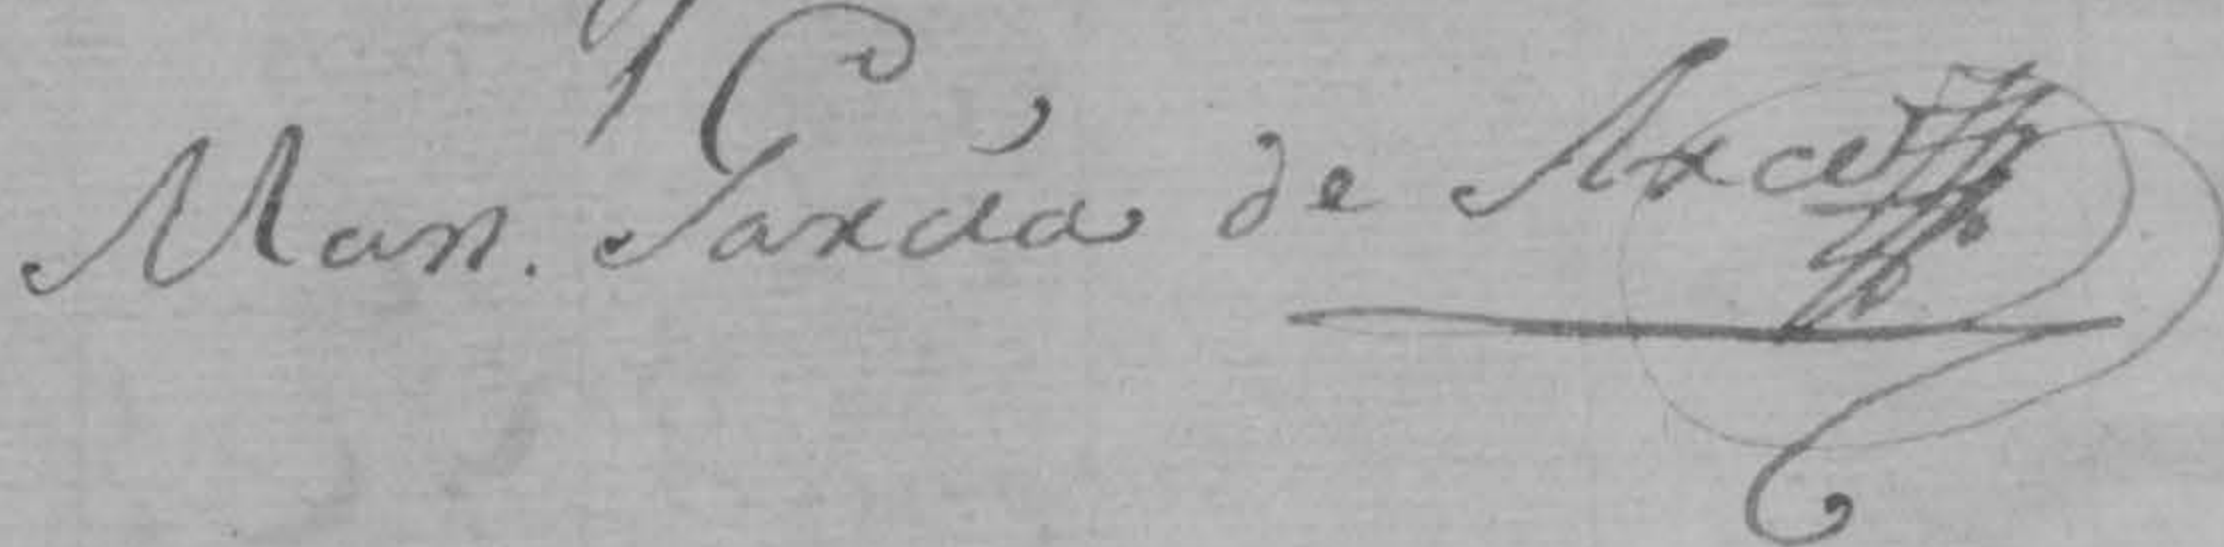 Man. García de Arce